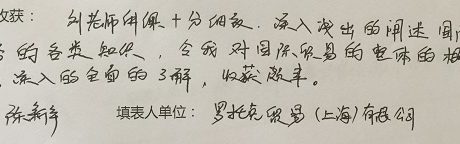 收获： 刘老师讲课十分细致，深入浅出的阐述国
的各类知识，令我对国际贸易的整体的概
，深入的全面的了解，收获颇丰。
填表人单位：罗托克贸易（上海）有限公司